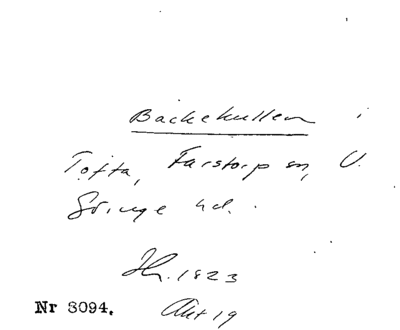 Backekullen i
Tofta, Farstorp sn, V.
Göinge hd.
Hh. 1823
Nr 3094. Akt 19